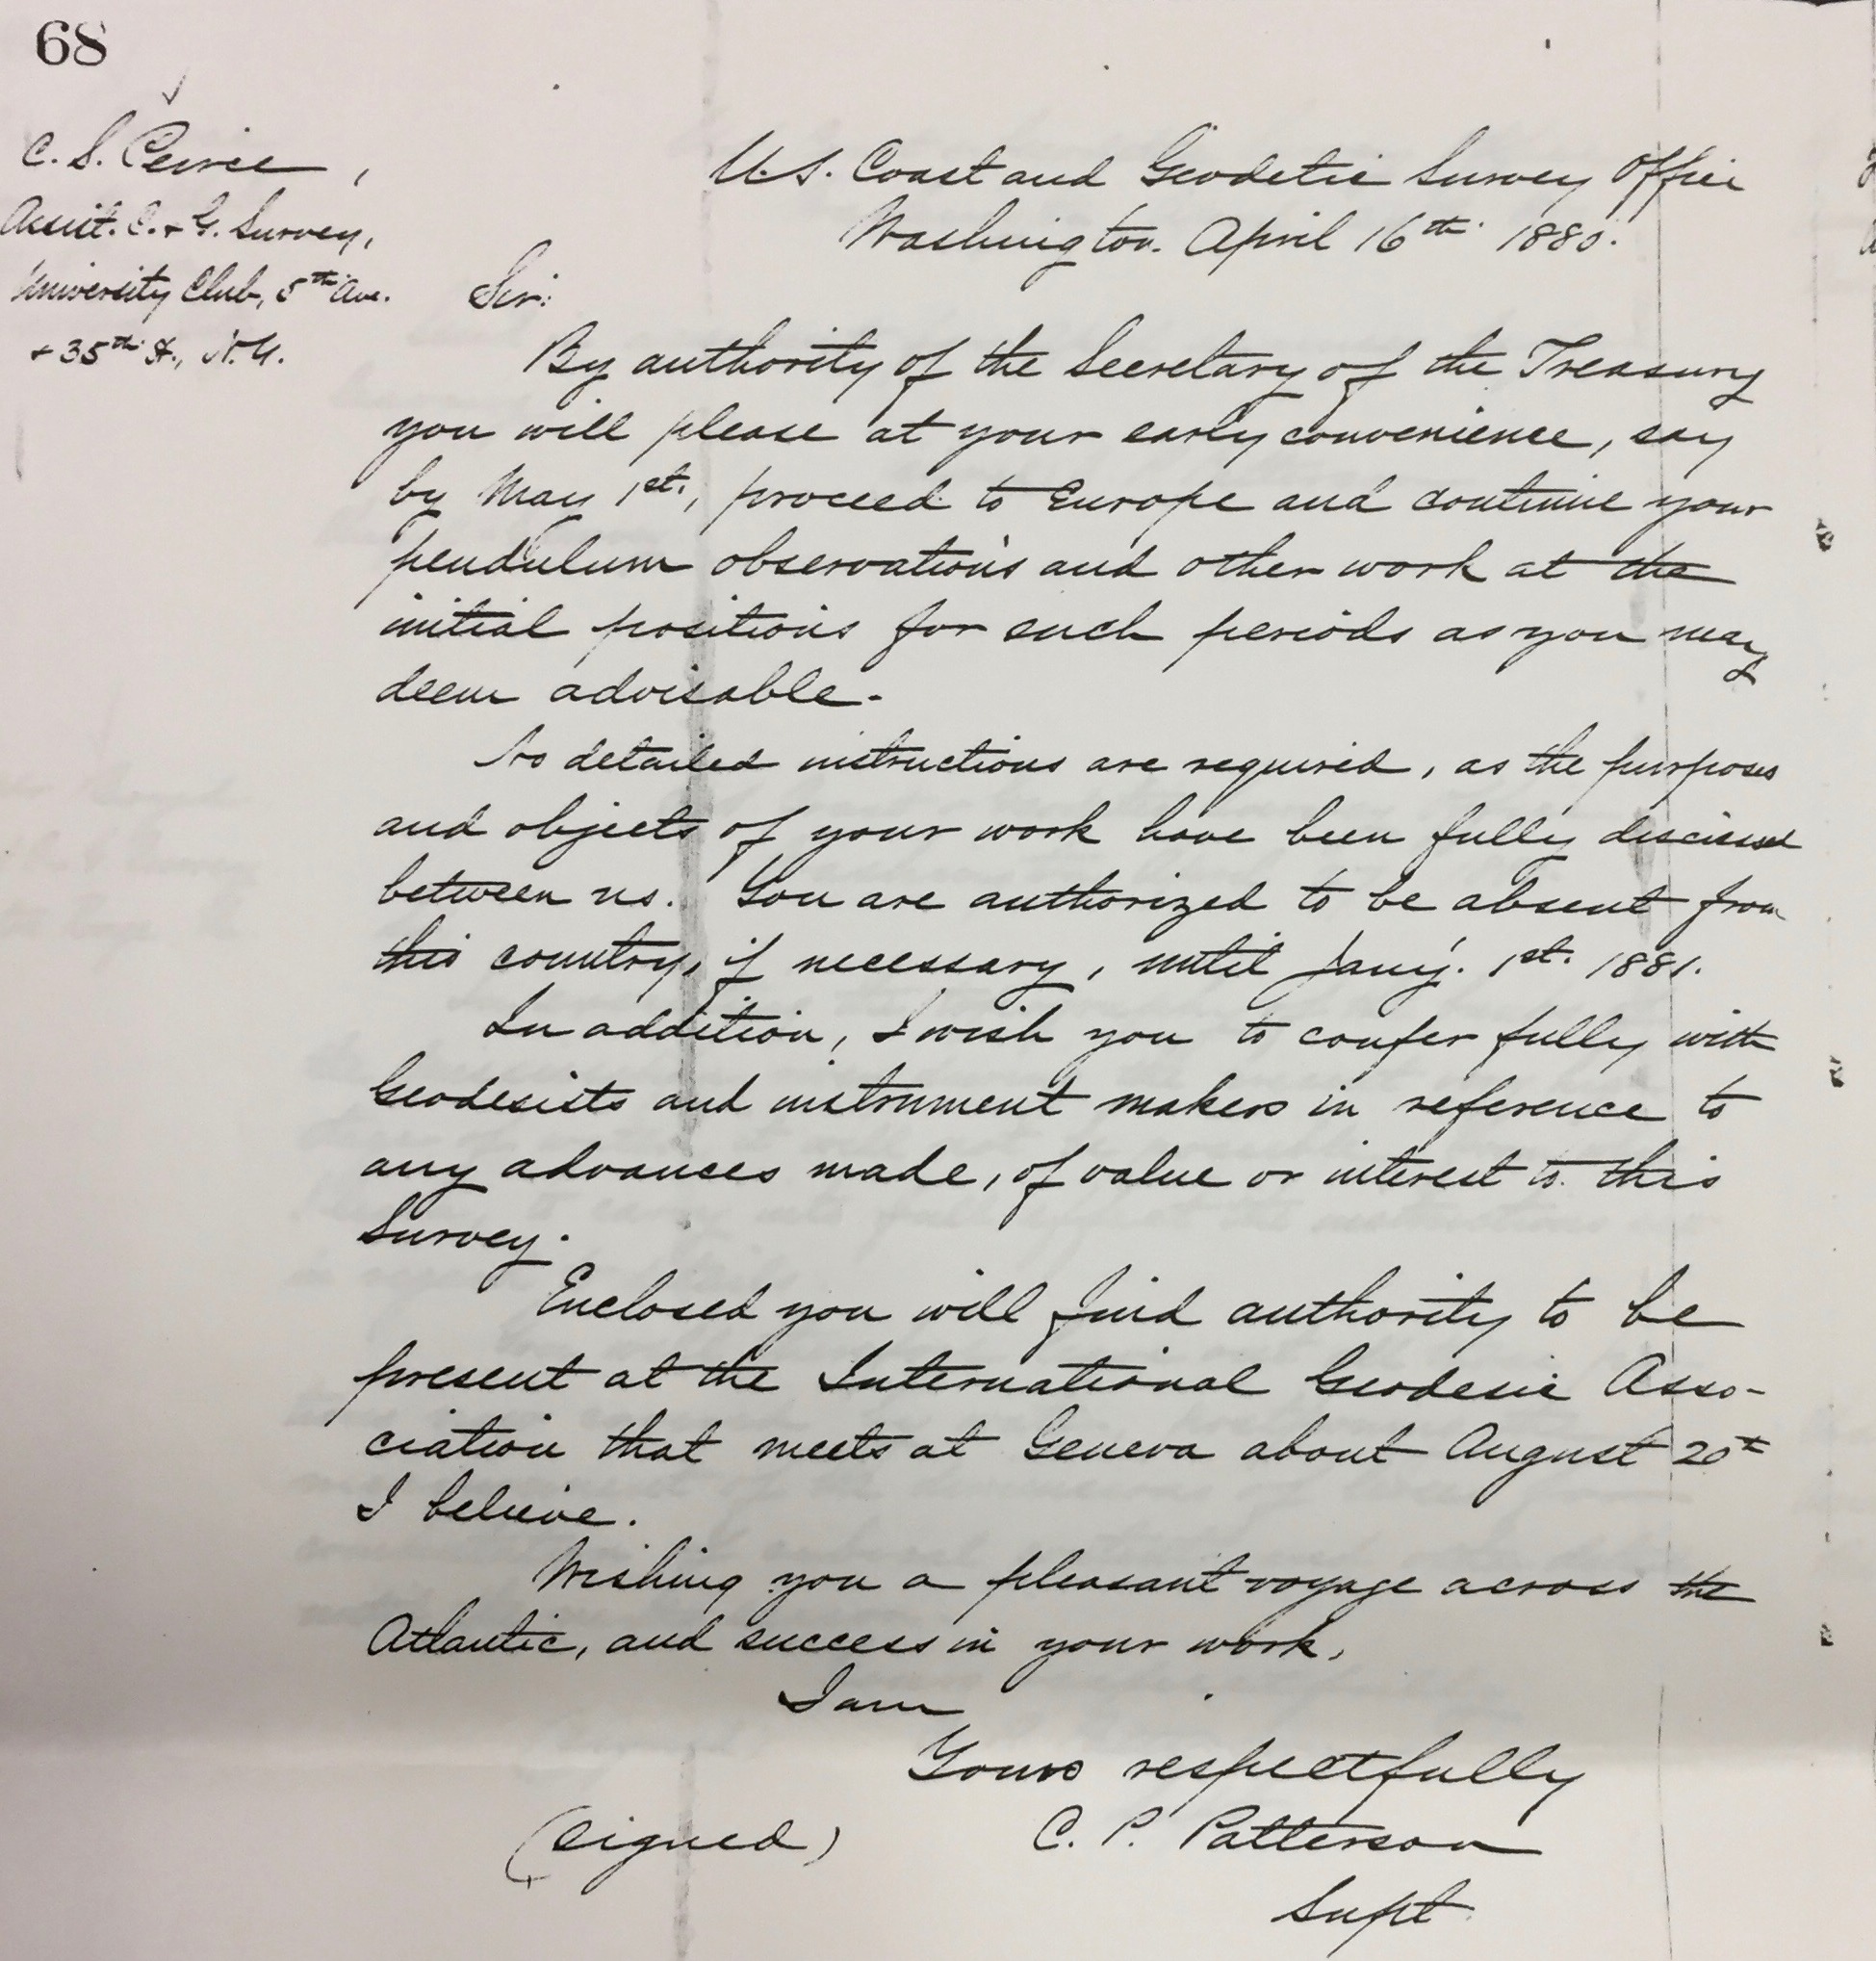 68
C. S. Peirce,
Assist. C. & G. Survey,
University Club, 5th Ave.
& 35th St., N.Y.
U.S. Coast and Geodetic Survey Office
Washington. April 16th. 1880.
Sir:
By authority of the Secretary of the Treasury
you will please at your early convenience, say
by May 1st., proceed to Europe and continue your
pendulum observations and other work at the
initial positions for such periods as you may
deem advisable.
No detailed instructions are required, as the purposes
and objects of your work have been fully discussed
between us. You are authorized to be absent from
this country, if necessary, until Jany. 1st. 1881.
In addition, I wish you to confer fully with
Geodesists and instrument makers in reference to
any advances made, of value or interest to this
Survey.
Enclosed you will find authority to be
present at the International Geodesic Asso-
ciation that meets at Geneva about August 20th
I believe.
Wishing you a pleasant voyage across the
Atlantic, and success in your work,
I am
Yours respectfully
(signed) C. P. Patterson
Supt.